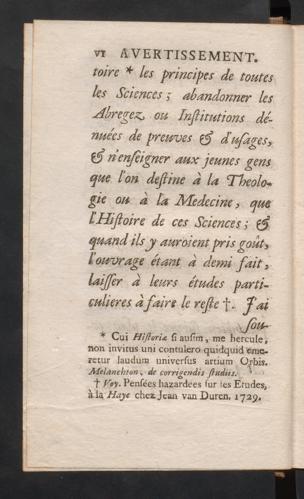 VI AVERTISSEMENT.
toire * les principes de toutes
les Sciences ; abandonner les
Abregez ou Inſtitutions dé-
nuées de preuves & d'uſages,
& n'enſeigner aux jeunes gens
que l'on deſtine à la Theolo-
gie ou à la Medecine, que
l'Hiſtoire de ces Sciences ; &
quand ils y auroient pris goût,
l'ouvrage étant à demi fait,
laiſſer à leurs études parti-
culieres à faire le reſte †. J'ai
ſou-
* Cui Hiſtoriæ ſi auſim, me hercule,
non invitus uni contulero quidquid eme-
retur laudum univerſus artium Orbis.
Melanchton, de corrigendis ſtudiis.
† Voy. Penſées hazardées ſur les Etudes,
à la Haye chez Jean van Duren. 1729.